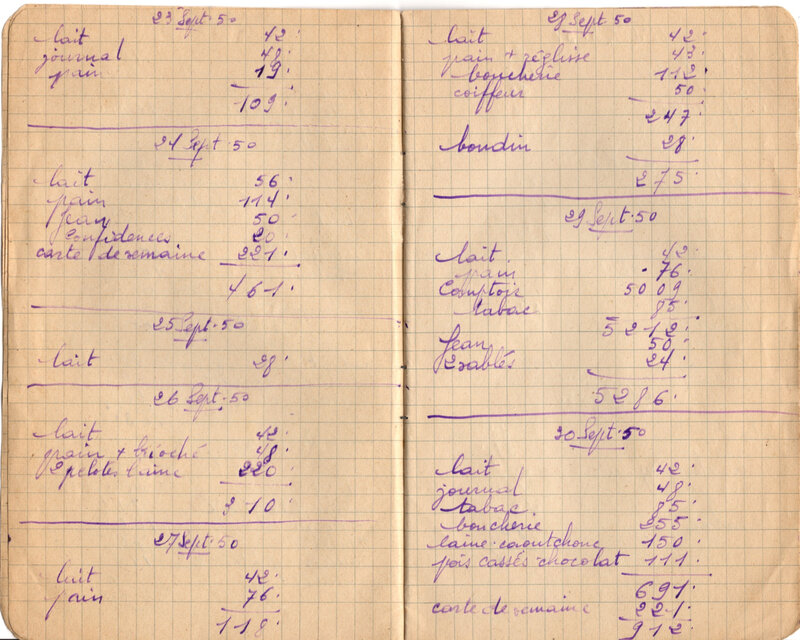 23 Sept. 50
lait 42.
journal 48.
pain 19.
109.
24 Sept. 50
lait 56
pain 114
Jean 50
Confidences 20
carte de semaine 221.
461.
25 Sept. 50
lait 28.
26 Sept. 50
lait 42.
pain + brioché 48.
2 pelotes laine 220.
310.
27 Sept. 50
lait 42.
pain 76.
118.
28 Sept. 50
lait 42.
pain + réglisse 43.
boucherie 112.
coiffeur 50.
247.
boudin 28.
275.
29 Sept. 50
lait. 42.
pain 76.
Comptoir 5009.
tabac 85.
5212.
Jean 50.
2 sablés 24.
5286.
30 Sept. 50
lait 42.
journal 48.
tabac. 85.
boucherie 255.
laine-caoutchouc 150.
pois cassés-chocolat 111.
691.
carte de semaine 221.
912.